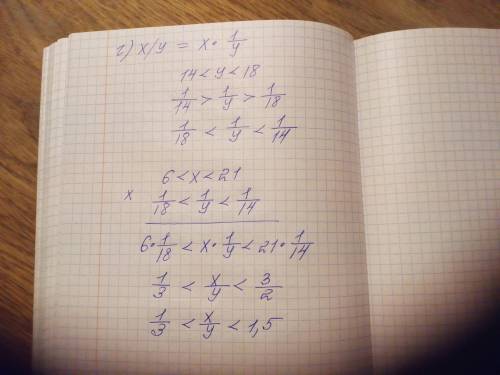 г) x/y = x · 1/y
14 < y < 18
1/14 > 1/y > 1/18
1/18 < 1/y < 1/14
6 < x < 21
x 1/18 < 1/y < 1/14
6 · 1/18 < x · 1/y < 21 · 1/14
1/3 < x/y < 3/2
1/3 < x/y < 1,5